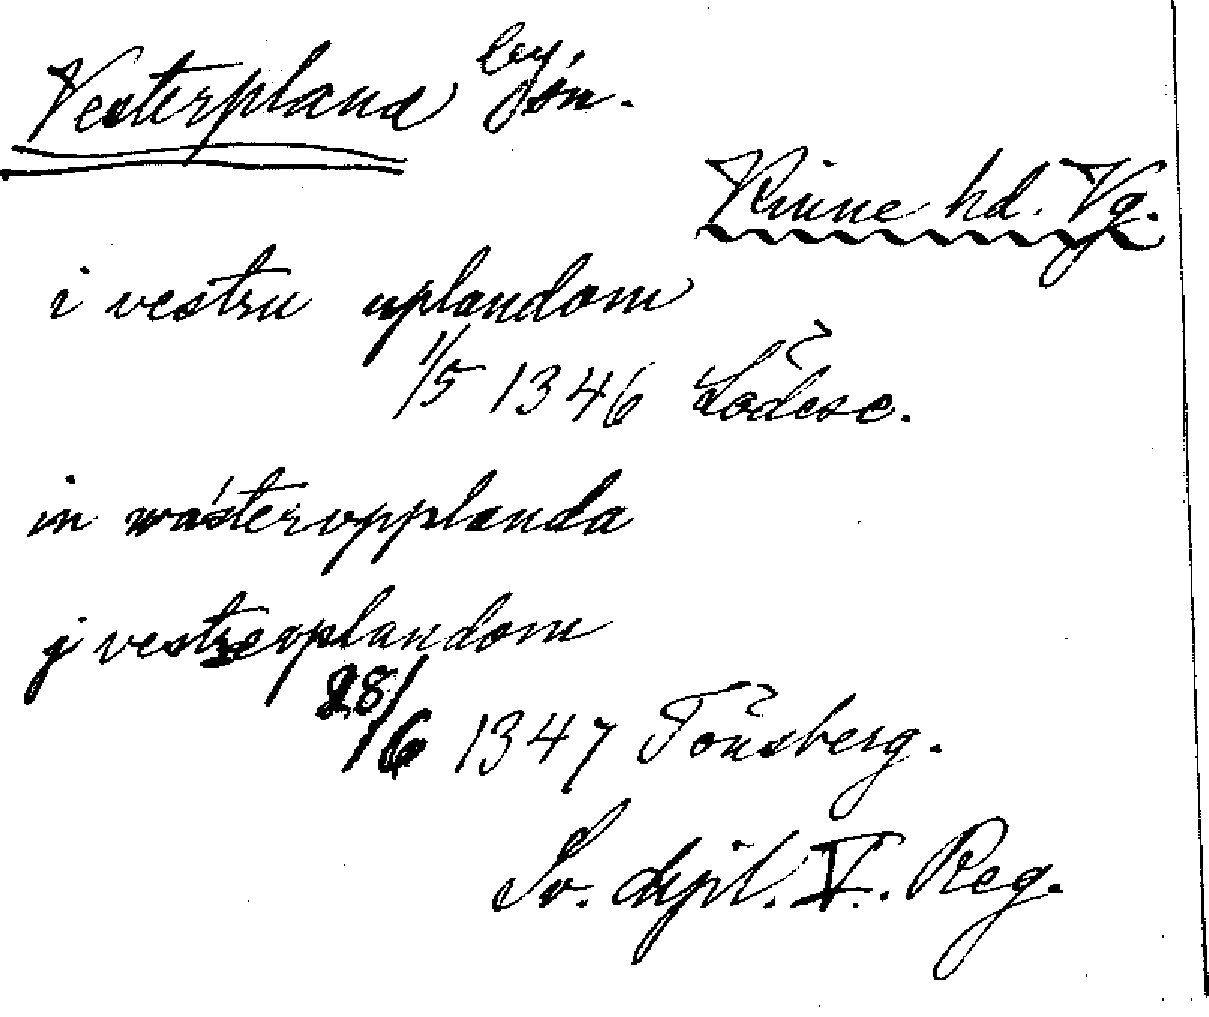 Vesterplana by, sn.
Kinne hd. Vg.
i vestru uplandom
1/5 1346 Lödese.
in wásteropplanda
j vestreoplandom
28/6 1347 Tönsberg.
Sv. dipl. V. Reg.